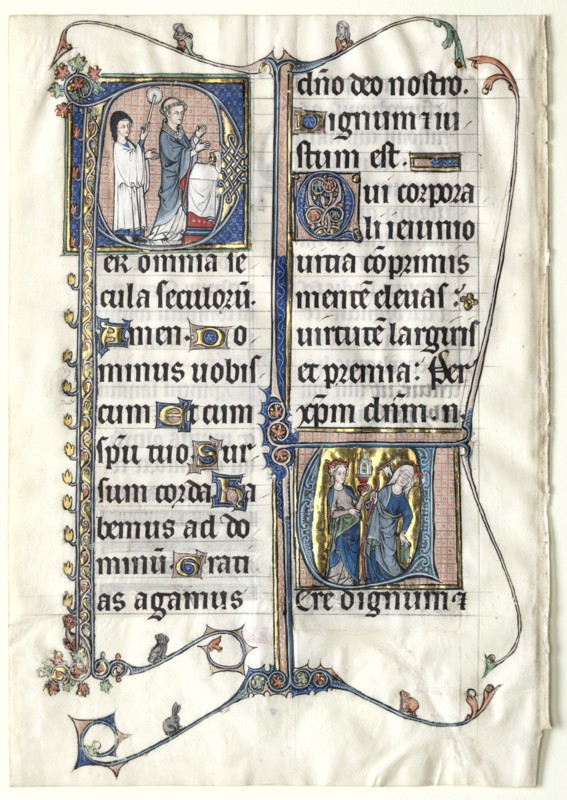 er omnia se
cula seculorū.
Amen. Do
minus uobis
cum Et cum
spū tuo. Sur
sum corda Ha
bemus ad do
minū. Grati
as agamus
dn̄o deo nostro.
Dignum ⁊ iu
stum est.
Qui corpora
li ieiunio
uitia cōprimis
mentē eleuas :
uirtutē largiris
et premia: Per
xp̄m dn̄m. n.
Ere dignum ⁊